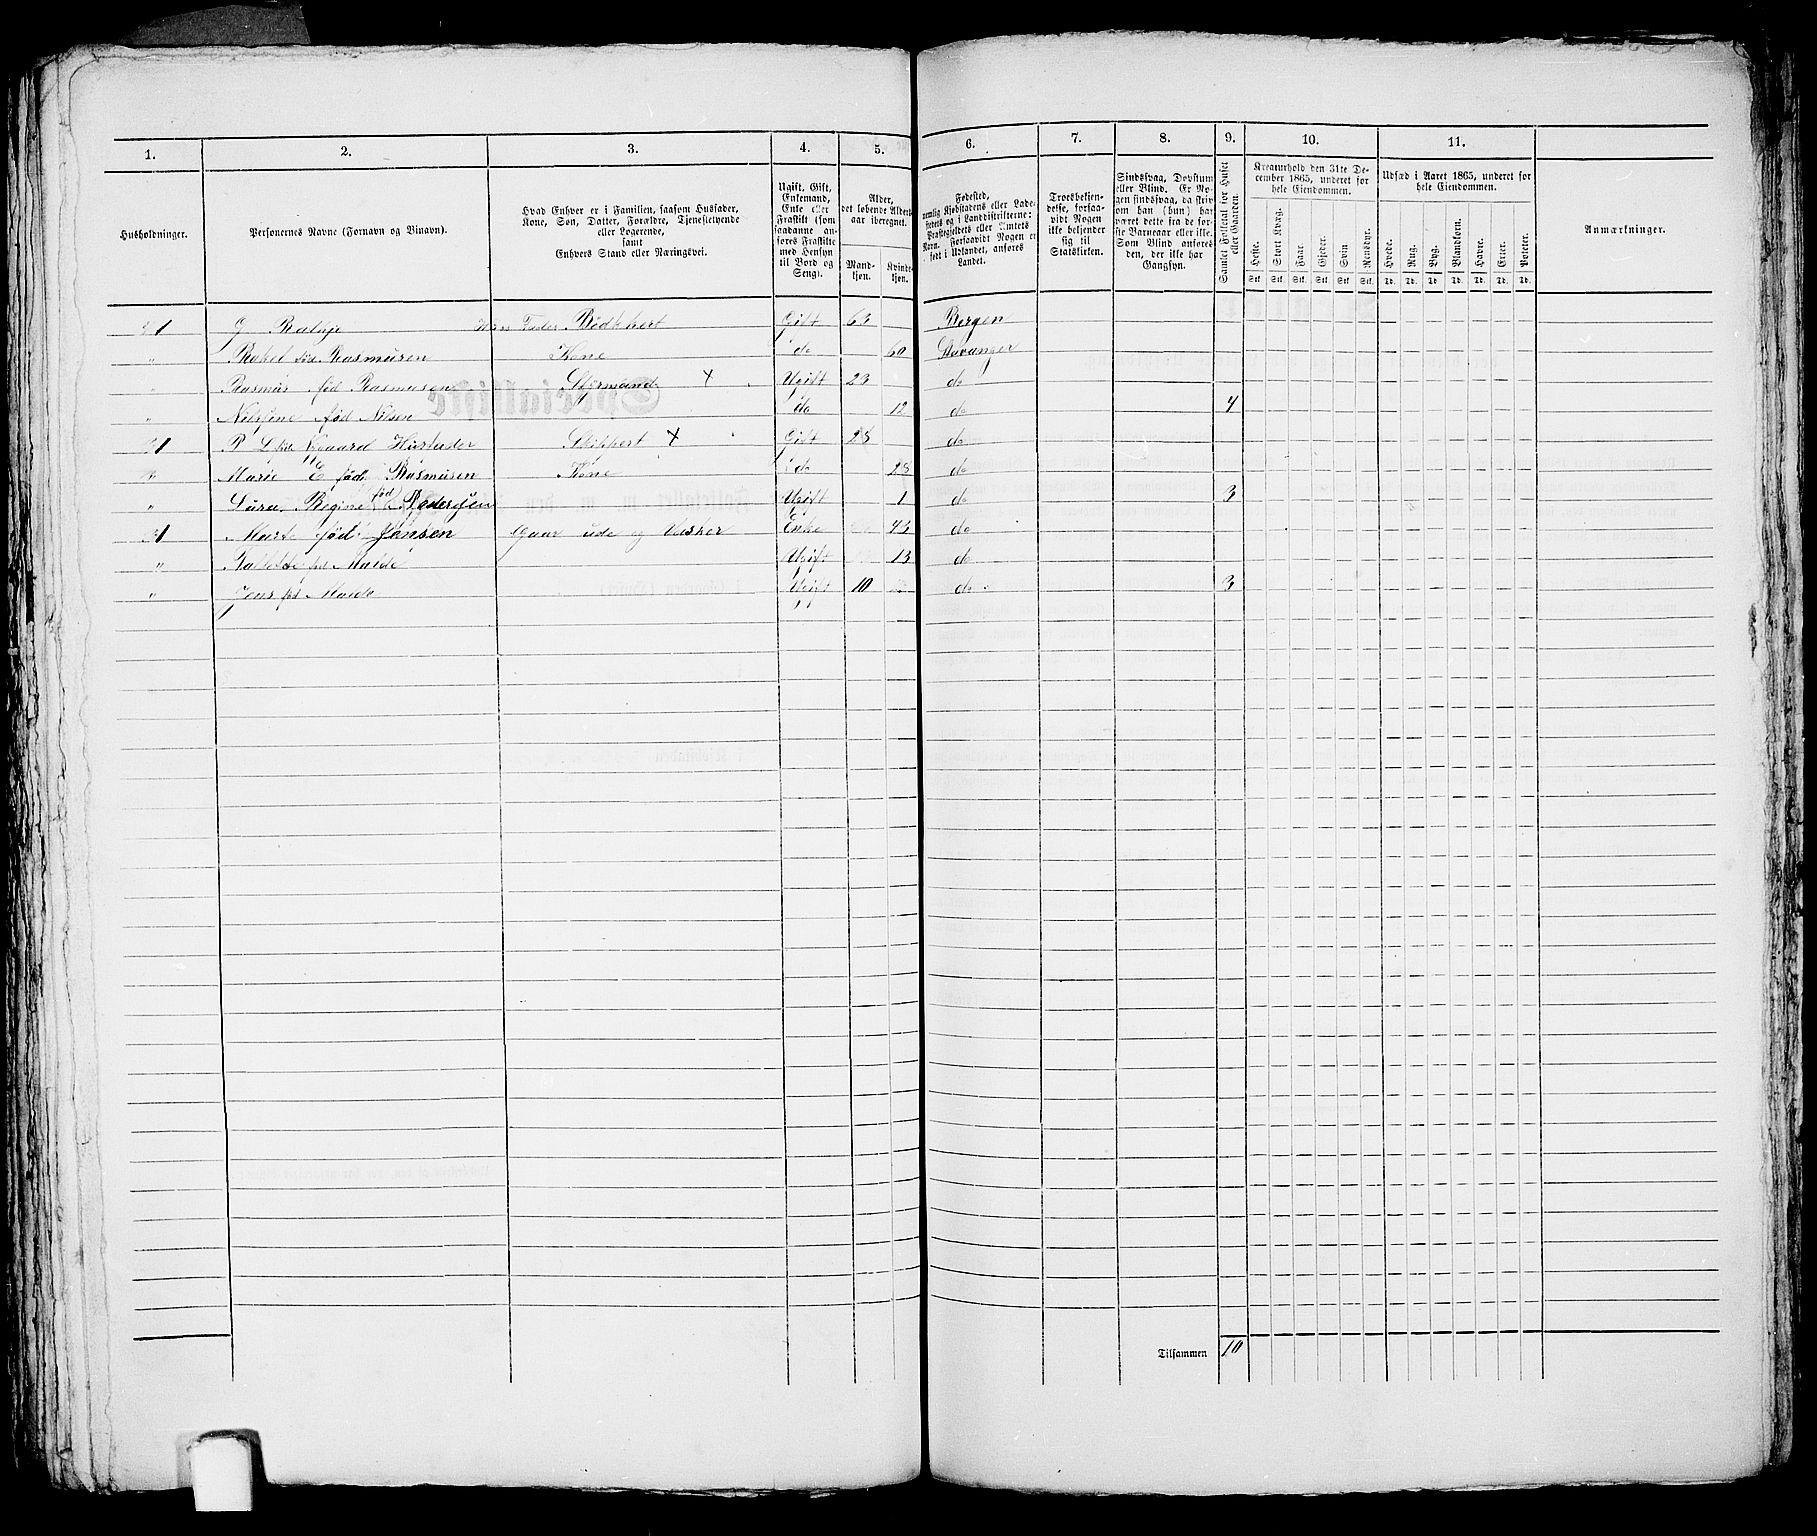 1. 2. 3. 4. 5. 6. 7. 8. 9. 10. 11.
Husholdninger.
Personernes Navne (Fornavn og Vinavn).
Hvad Enhver er i Familien, saasom Husfader,
Kone, Søn, Datter, Forældre, Tjenestetyende
eller Logerende,
samt
Enhvers Stand eller Næringsvei.
Ugift, Gift,
Enkemand,
Enke eller
Fraskilt (som
saadanne an-
føres Fraskilte
med Hensyn
til Bord og
Seng).
Alder,
det løbende Alders-
aar iberegnet.
Mand-
kjøn.
Kvinde-
kjøn.
Fødested,
nemlig Kjøbstadens eller Lade-
stedets og i Landdistrikterne:
Præstegjeldets eller Amtets
Navn. Forsaavidt Nogen er
født i Udlandet, anføres
Landet.
Troesbekjen-
delse, forsaa-
vidt Nogen
ikke bekjender
sig til
Statskirken.
Sindssvag, Døvstum
eller Blind. Er No-
gen sindssvag, da skriv
om han (hun) har
været dette fra de før-
ste Barneaar eller ikke.
Som Blind anføres
den, der ikke har
Gangsyn.
Samlet Folketal for Huset
eller Gaarden.
Kreaturhold den 31te De-
cember 1865, underet for
hele Eiendommen.
Heste. Stort Kvæg. Faar. Gjeder. Svin Rensdyr.
Stk. Stk. Stk. Stk. Stk. Stk.
Udsæd i Aaret 1865, underet for
hele Eiendommen.
Hvede. Rug. Byg. Blandkorn. Havre. Erter. Poteter.
Td. Td. Td. Td. Td. Td. Td.
Anmærkninger.
1 G Bødkkert Gift 63 Bergen
" Rakel Rasmusen Kone do 60 Stavanger
" Rasmus fød Rasmusen Styrmand X Ugift 23 do
" fød Nilsen do 12 do 4
1 Skippert X Gift 28 do
" Marie E fød Rasmusen Kone do 28 do
" Regine fød Pedersen Ugift 1 do 3
1 Marte fød Jansen Gaar ude og Vasker Enke 43 do
" Malde Ugift 13 do
" Jens fød Malde Ugift 10 do 3
Tilsammen 10